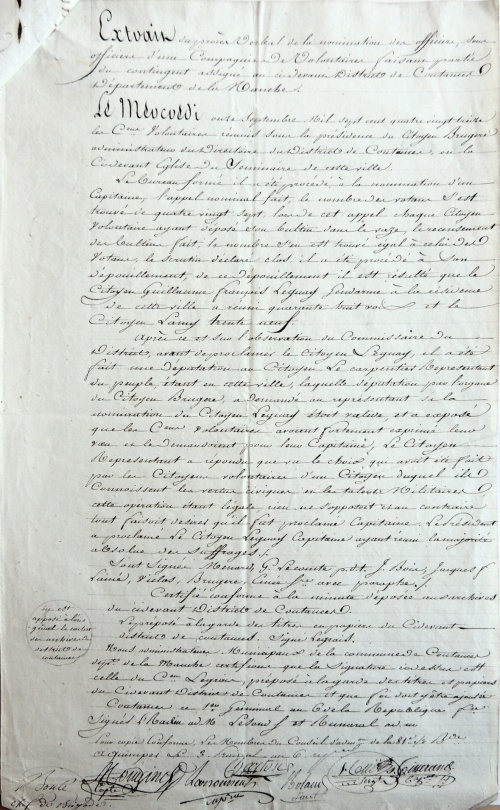 Extrait du procès Verbal de la nomination des officiers, sous
officiers d'une Compagnie de Volontaires faisant partie
du contingent assigné au cidevant District de Coutances
Département de la Manche.
Le Mercredi onze Septembre Mil sept cent quatre vingt treize
les C.ens Volontaires réunis sous la présidence du Citoyen Brugere
administrateur du Directoire du District de Coutances, en la
Cidevant Eglise du Séminaire de cette ville.
Le Bureau formé il a été procédé à la nomination d'un
Capitaine, l'appel nominal fait, le nombre des votans s'est
trouvé de quatre vingt sept, lors de cet appel chaque Citoyen
Volontaire ayant déposé son bultin dans le vase, le recensement
des bultins fait, le nombre s'en est trouvé égal à celui des
Votans, le scrutin déclaré clos, il a été procédé à son
dépouillement, de ce dépouillement il est résulté que le
Citoyen Guillaume François Leguay Gendarme à la résidence
de cette ville a réuni quarante huit voix et le
Citoyen Lamy trente neuf.
Après ce et sur l'observation du Commissaire du
District, avant de proclamer le Citoyen Leguay, il a été
fait une députation au Citoyen Le carpentier Représentant
du peuple, étant en cette ville, laquelle députation par l'organe
du Citoyen Brugere, a demandé au représentant si la
nomination du Citoyen Leguay étoit valide et a exposé
que les C.ens Volontaires avoient fortement exprimé leur
vœu et le demandoient pour leur Capitaine, Le Citoyen
Représentant a répondu que vu le choix qui avoit été fait
par les Citoyens volontaires d'un Citoyen duquel ils
Connoissent les vertus civiques et les talents Militaires
cette opération étant légale rien ne s'opposoit et au contraire
tout faisoit désirer qu'il fut proclamé Capitaine. Le Président
a proclamé Le Citoyen Leguay Capitaine ayant réuni la majorité
absolue des Suffrages.
Sont Signés Menard, G. Lecomte p.dt, J. Boir, Jacques
Lainé, Brugere, avec paraphes
Certifié conforme à la minute déposée aux archives
du cidevant District de Coutances
Le préposé à la garde des titres et papiers du Cidevant
district de Coutances. Signé Legrain.
Nous administrateurs Municipaux de la commune de Coutances
dépt. de la Manche certifions que la Signature ci dessus est
celle du C.en Legrain, préposé à la garde des titres et papiers
du Cidevant District de Coutances et que foi doit y être ajouté
Coutances ce 1er Germinal an 6 de la République f.se
Signés
Pour copie Conforme. Les Membres du Conseil d'adm.on de la 81e 1/2 B.de
à Quimper
Cap.ne
chef de brigade